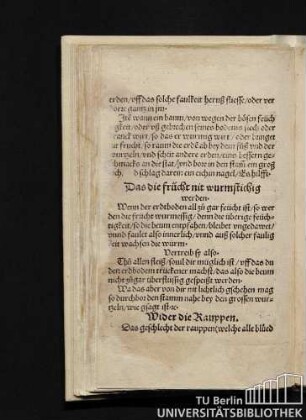 erden/ vff das solche faulkeit heruß fliesse/ oder ver
gantz in jm
Itē wann ein baum/ von wegen der bösen feüch
gkeit/ oder vß gebrechen seines bodens siech oder
kranck wirt/ so das er wurmig wirt/ oder hunget
frucht/ so raum die erd ab bey dem füß vnd der
wurtzeln/ vnd schüt andere erden/ eins bessern ge
schmacks an der stat/ vnd bor in den stam ein groß
ch/ schlag darein ein eichin nagel/ Es hilfft
Das die frücht nit wurmstichig
werden.
Wenn der erdboden all zů gar feücht ist/ so wer
den die frücht wurmessig/ denn die überige feüch
tigkeit/ so die beum empfahen/ bleibet vngedawet/
vnnd faulet also innerlich/ vnnd auß solcher faulig
keit wachsen die würm.
Vertreib sy also.
Thů allen fleiß/ souil dir müglich ist/ vff das du
den erdbodem truckener machst/ das also die beum
nicht zů gar überflüssig gespeißt werden.
Wa das aber von dir nit lichtlich gschehen mag
so durchbor den stamm nahe bey den grossen wur
tzeln/ wie gsagt ist
Wider die Rauppen.
Das geschlecht der rauppen/ welche alle blüed
TU Berlin
UNIVERSITÄTSBIBLIOTHEK